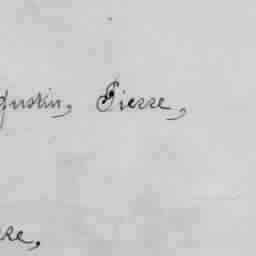 gustin, Pierre,
re,